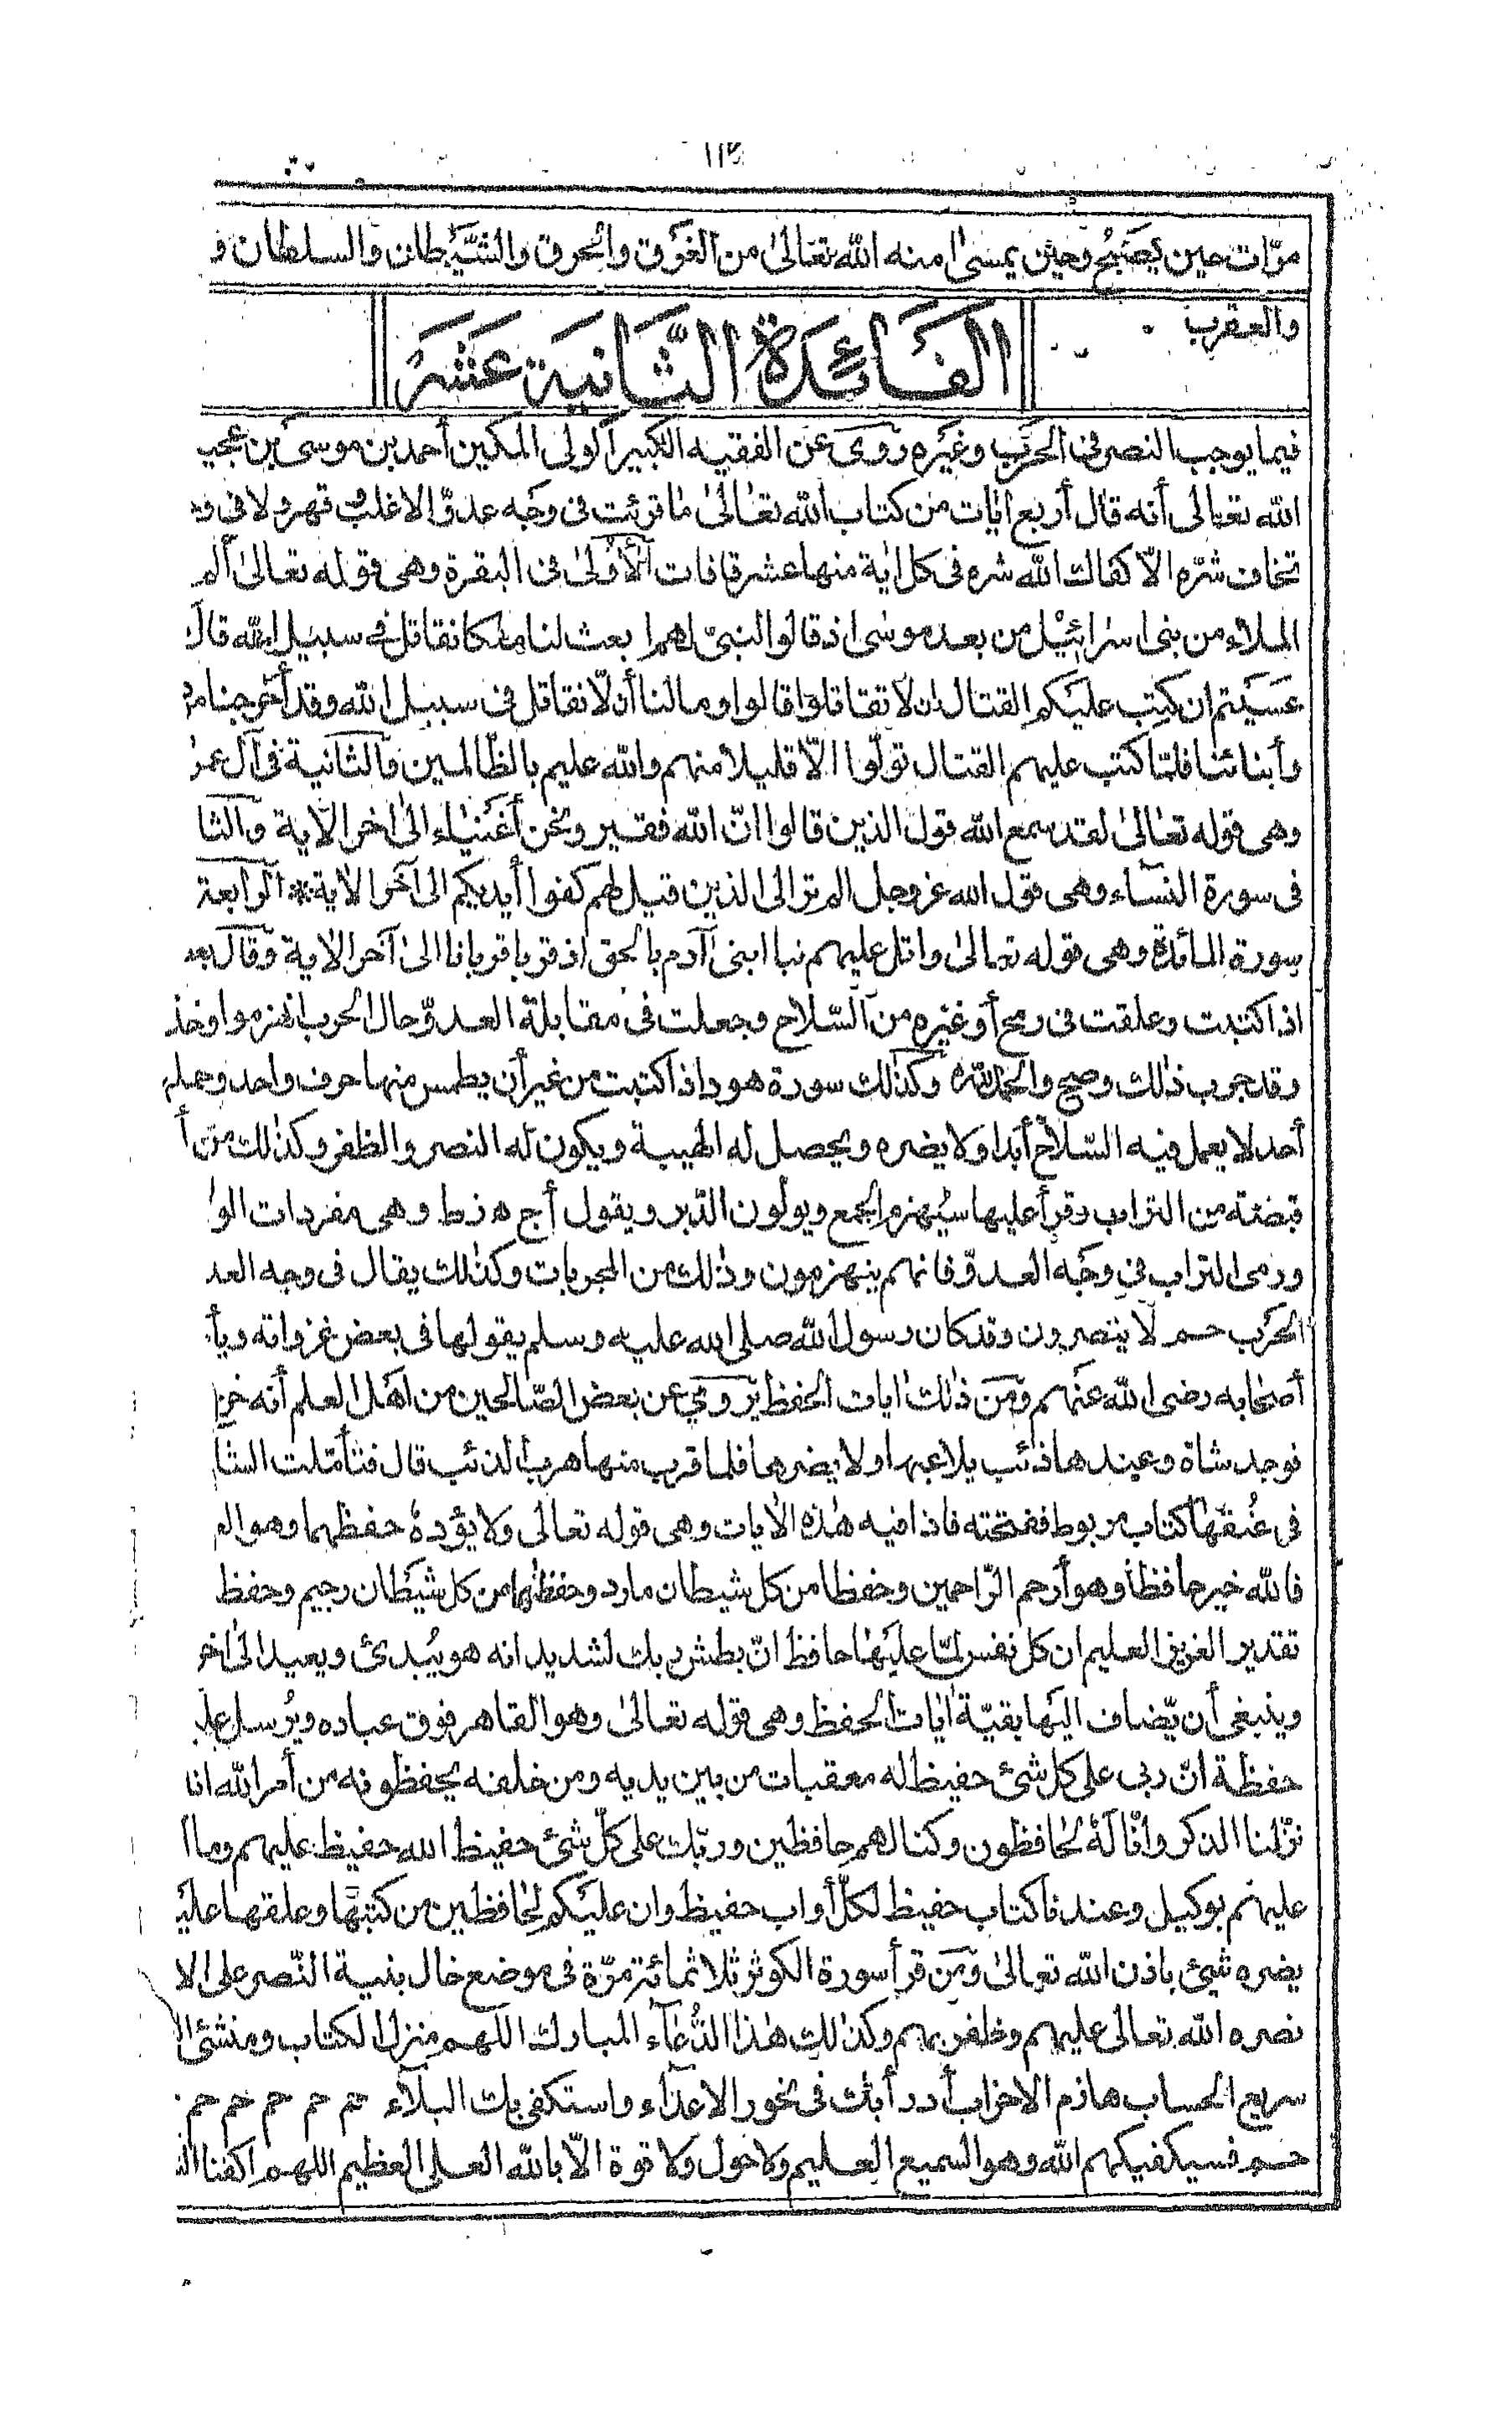 ١١٥
مرّات حين يصبح وحين يمسى امنه الله تعالىٰ من الغرق والحرق والشّيطان والسلطان و
والعقرب
الفَائدة الثَّانية عَشَرَ
فيما يوجب النصر فى الحرب وغيره روى عن الفقيه الكبير الولى المكين أحمد بن موسى بن عجيـ
الله تعالى أنه قال أربع اٰيات من كتاب الله تعالىٰ ما قرئت فى وجه عدوّ الا غلب وقهر ولا فى و
تخاف شرّه الّا كفاك الله شره فى كل اٰية منها عشر قافات الأولىٰ فى البقرة وهى قوله تعالىٰ ألم
الملاء من بنى اسرائيل من بعد موسى اذ قالوا لنبىّ لهم ابعث لنا ملكا نقاتل فى سبيل الله قال
عسيتم ان كتب عليكم القتال ان لّا تقاتلوا قالوا وما لنا أن لّا نقاتل فى سبيل الله وقد أخرجنا من
وأبنائنا فلمّا كتب عليهم القتال تولّوا الّا قليلا منهم والله عليم بالظّالمين والثانية فى آل عمر
وهى قوله تعالىٰ لقد سمع الله قول الذين قالوا انّ الله فقير ونحن أغنياء الى اٰخر الاٰية والثا
فى سورة النساء وهى قول الله عز وجل الم تر الى الذين قيل لهم كفوا أيديكم الى آخر الاٰية * الرابعة
سورة المائدة وهى قوله تعالىٰ واتل عليهم نبا ابنى آدم بالحق اذ قربا قربانا الىٰ آخر الاٰية وقال بعد
اذا كتبت وعلقت فى رمح أو غيره من السّلاح وجعلت فى مقابلة العدوّ حال الحرب انهزموا وخذ
وقد جرب ذٰلك وصح والحمد لله وكذٰلك سورة هود اذا كتبت من غير أن يطمس منها حرف واحد وحملها
أحد لا يعمل فيه السّلاح أبدا ولا يضره ويحصل له الهيبة ويكون له النصر والظفر وكذٰلك من أ
قبضة من التراب وقرأ عليها سيهزم الجمع ويولون الدّبر ويقول أ ج ه ز ط وهى مفردات الو
ورمى التراب فى وجه العدوّ فانهم ينهزمون وذٰلك من المجربات وكذٰلك يقال فى وجه العد
الحرب حم لا ينصرون وقد كان رسول الله صلى الله عليه وسلم يقولها فى بعض غزواته ويأ
أصحابه رضى الله عنهم ومن ذٰلك اٰيات الحفظ يروى عن بعض الصّالحين من اهل العلم أنه خر
فوجد شاة وعندها ذئب يلاعبها ولا يضرها فلما قرب منها هرب الذئب قال فتأمّلت الشا
فى عُنقها كتاب مربوط ففتحته فاذا فيه هٰذه الاٰيات وهى قوله تعالى ولا يؤده حفظهما وهو الع
فالله خير حافظا وهو أرحم الرّاحمين وحفظا من كل شيطان مارد وحفظنها من كل شيطان رجيم وحفظ
تقدير العزيز العليم ان كل نفس لمّا عليها حافظ انّ بطش ربك لشديد انه هو يُبدئ ويعيد الىٰ اٰخر
وينبغى أن يّضاف اليها بقيّة اٰيات الحفظ وهى قوله تعالىٰ وهو القاهر فوق عباده ويُرسل علـ
حفظة انّ ربى على كل شئ حفيظ له معقبات من بين يديه ومن خلفه يحفظونه من أمر الله انا
نزّلنا الذكر وانّا لهٗ لحافظون وكنا لهم حافظين وربّك على كلّ شئ حفيظ الله حفيظ عليهم وما أ
عليهم بوكيل وعندنا كتاب حفيظ لكلّ أواب حفيظ وان عليكم لحافظين من كتبها وعلقها عليـ
يضره شئ باذن الله تعالىٰ ومن قرأ سورة الكوثر ثلاثمائة مرّة فى موضع خال بنية النّصر على الا
نصره الله تعالى عليهم وظفر بهم وكذٰلك هٰذا الدُّعآء المبارك اللهم منزل الكتاب ومنشئ ال
سريع الحساب هازم الاحزاب أدرأ بك فى نحور الاعدآء واستكفى بك البلآء حم حم حم حم حم
حم فسيكفيكهم الله وهو السميع العليم ولا حول ولا قوة الّا بالله العلى العظيم اللهم اكفنا الذ